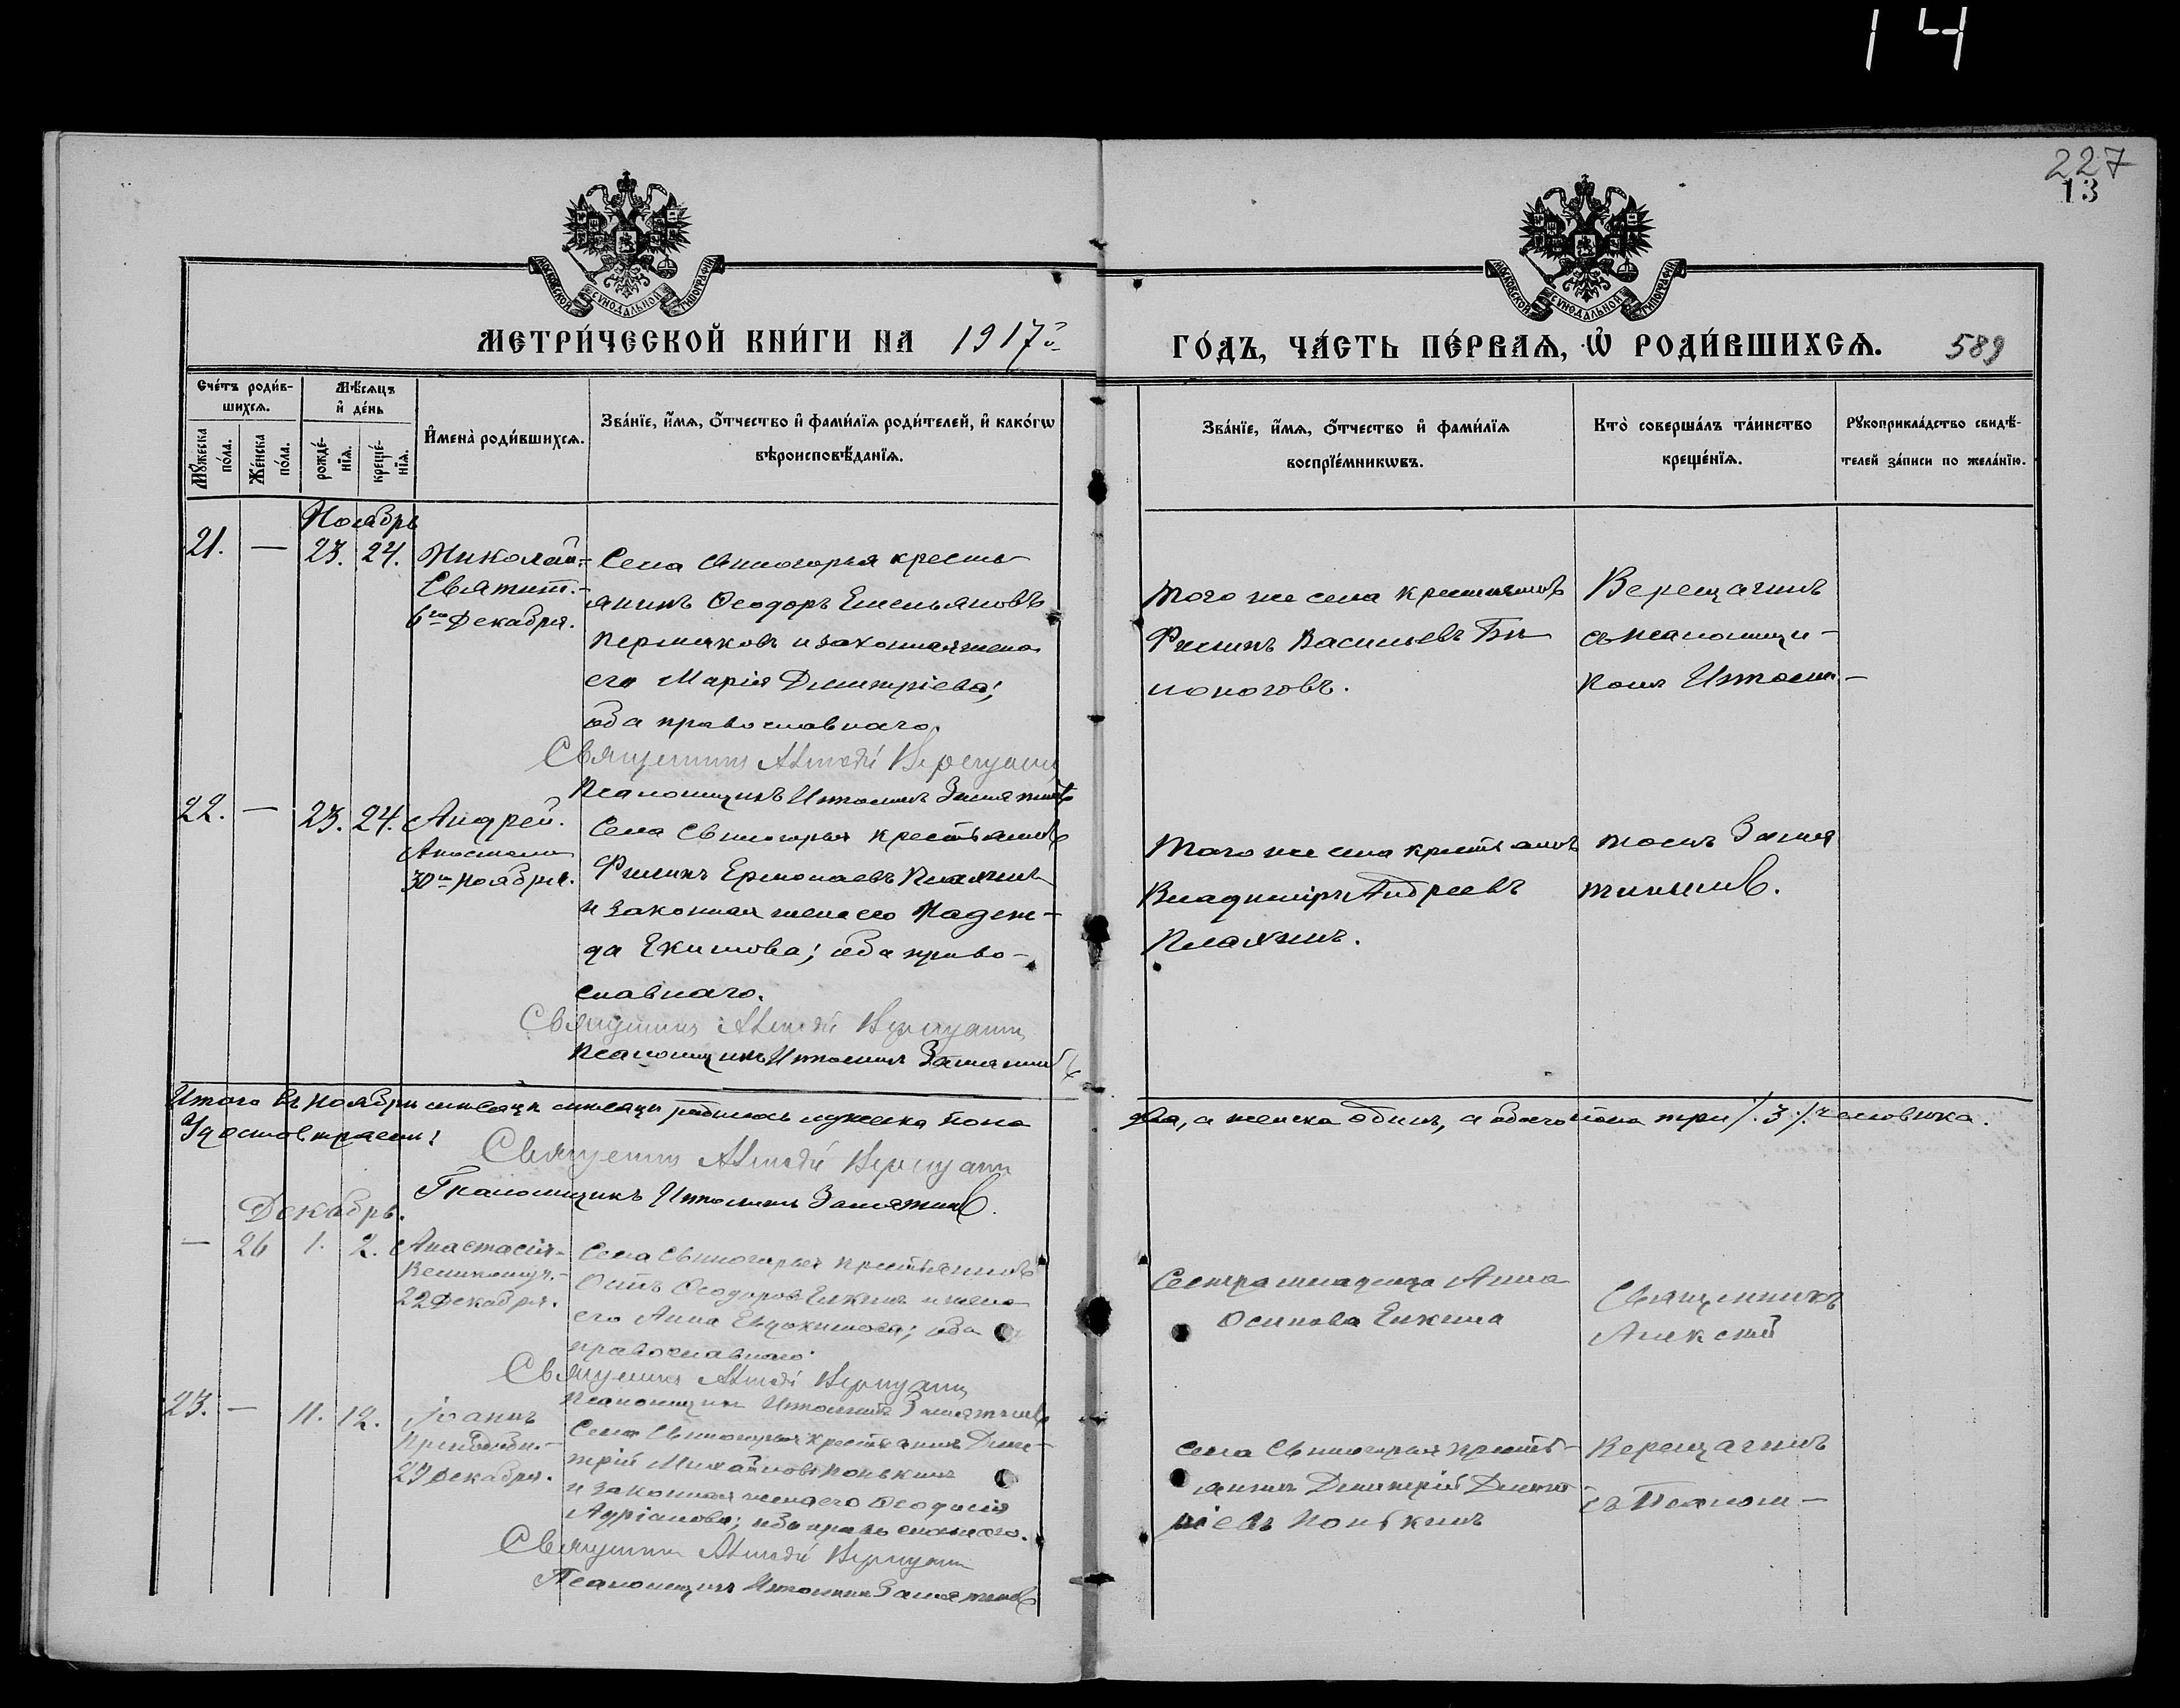 14
227
13
МОСКОВСКОЙ СУНОДАЛЬНОЙ ТИПОГРАФІИ
МОСКОВСКОЙ СУНОДАЛЬНОЙ ТИПОГРАФІИ
МЕТРИ́ЧЕСКОЙ КНИ́ГИ НА 1917 ГО́ДЪ, ЧА́СТЬ ПЕ́РВАѦ, Ѡ РОДИ́ВШИХСѦ. 589
Сче́тъ роди́в-
шихсѧ.
Мѣ́сѧцъ
и де́нь
Мꙋ́жеска по́ла.
Же́нска по́ла.
рожде́-
нїѧ.
креще́-
нїѧ.
Имена̀ роди́вшихсѧ.
Зва́нїе, и́мѧ, о́тчество и фами́лїѧ роди́телей, и како́гѡ
вѣроисповѣ́данїѧ.
Зва́нїе, и́мѧ, о́тчество и фами́лїѧ
воспрїе́мникѡвъ.
Кто̀ соверша́лъ та́инство
креще́нїѧ.
Рꙋкоприкла́дство свидѣ́-
телей за́писи по жела́нїю.
Ноябрь
21. — 23. 24. Николай
Святит.
6го Декабря.
Села Свиногорья кресть
янинъ Ѳеодоръ Емельяновъ
Пермяковъ и законная жена
его Марія Димитріева;
оба православнаго.
Священникъ Алексій Верещагинъ
Псаломщикъ Замятинъ
Того же села крестьянинъ
Филипъ Васильевъ Бѣ
лоноговъ.
Верещагинъ
съ псаломщи-
комъ
22. — 23. 24. Андрей.
Апостола
30го Ноября.
Села Свиногорья крестьянинъ
Филипъ Ермолаевъ Плахинъ
и законная жена его Надеж-
да Екимова; оба право-
славнаго.
Священникъ Алексій Верещагинъ
Псаломщикъ Замятинъ
Того же села крестьянинъ
Владиміръ Андреевъ
Плахинъ.
Замя
тинымъ.
Итого въ Ноябрѣ мѣсяцѣ родилось мужска пола два, а женска одинъ, а обоего пола три /.3./ человѣка.
Удостовѣряемъ:
Священникъ Алексій Верещагинъ
Псаломщикъ Замятинъ.
Декабрь.
— 26 1. 2. Анастасія
Великомуч.-
22 Декабря.
Села Свиногорья крестьянинъ
Ѳеодоровъ Елкинъ и жена
его Анна Евдокимова; оба
православнаго.
Священникъ Алексій Верещагинъ
Псаломщикъ Замятинъ
Сестра младенца Анна
Осипова Елкина
Священникъ
Алексій
23. — 11. 12. Іоаннъ
Преподобн.-
Декабря.
Села Свиногорья крестьянинъ Дими-
трій Михайловъ Понькинъ
и законная жена его Ѳеодосія
Адріанова; оба православнаго.
Священникъ Алексій Верещагинъ
Псаломщикъ Замятинъ
Села Свиногорья кресть-
янинъ Димитрій Димит
ріевъ Понькинъ
Верещагинъ
съ Псалом-